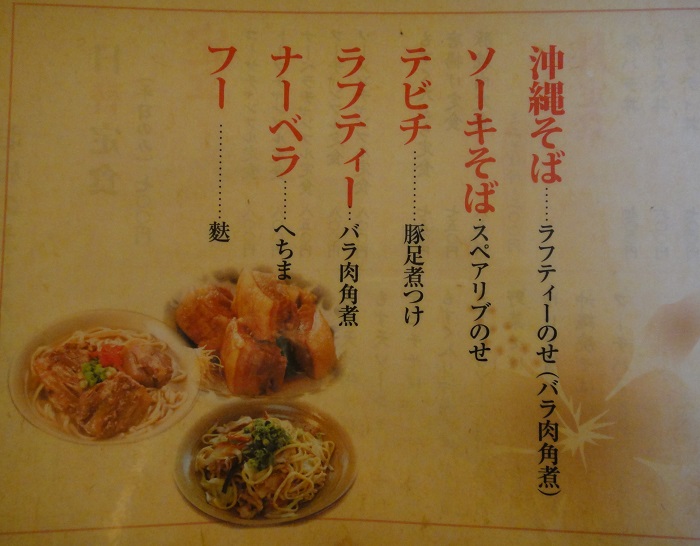 沖縄そば……ラフティーのせ(バラ肉角煮)
ソーキそば…スペアリブのせ
テビチ…………豚足煮つけ
ラフティー…バラ肉角煮
ナーベラ………へちま
フー………………麩